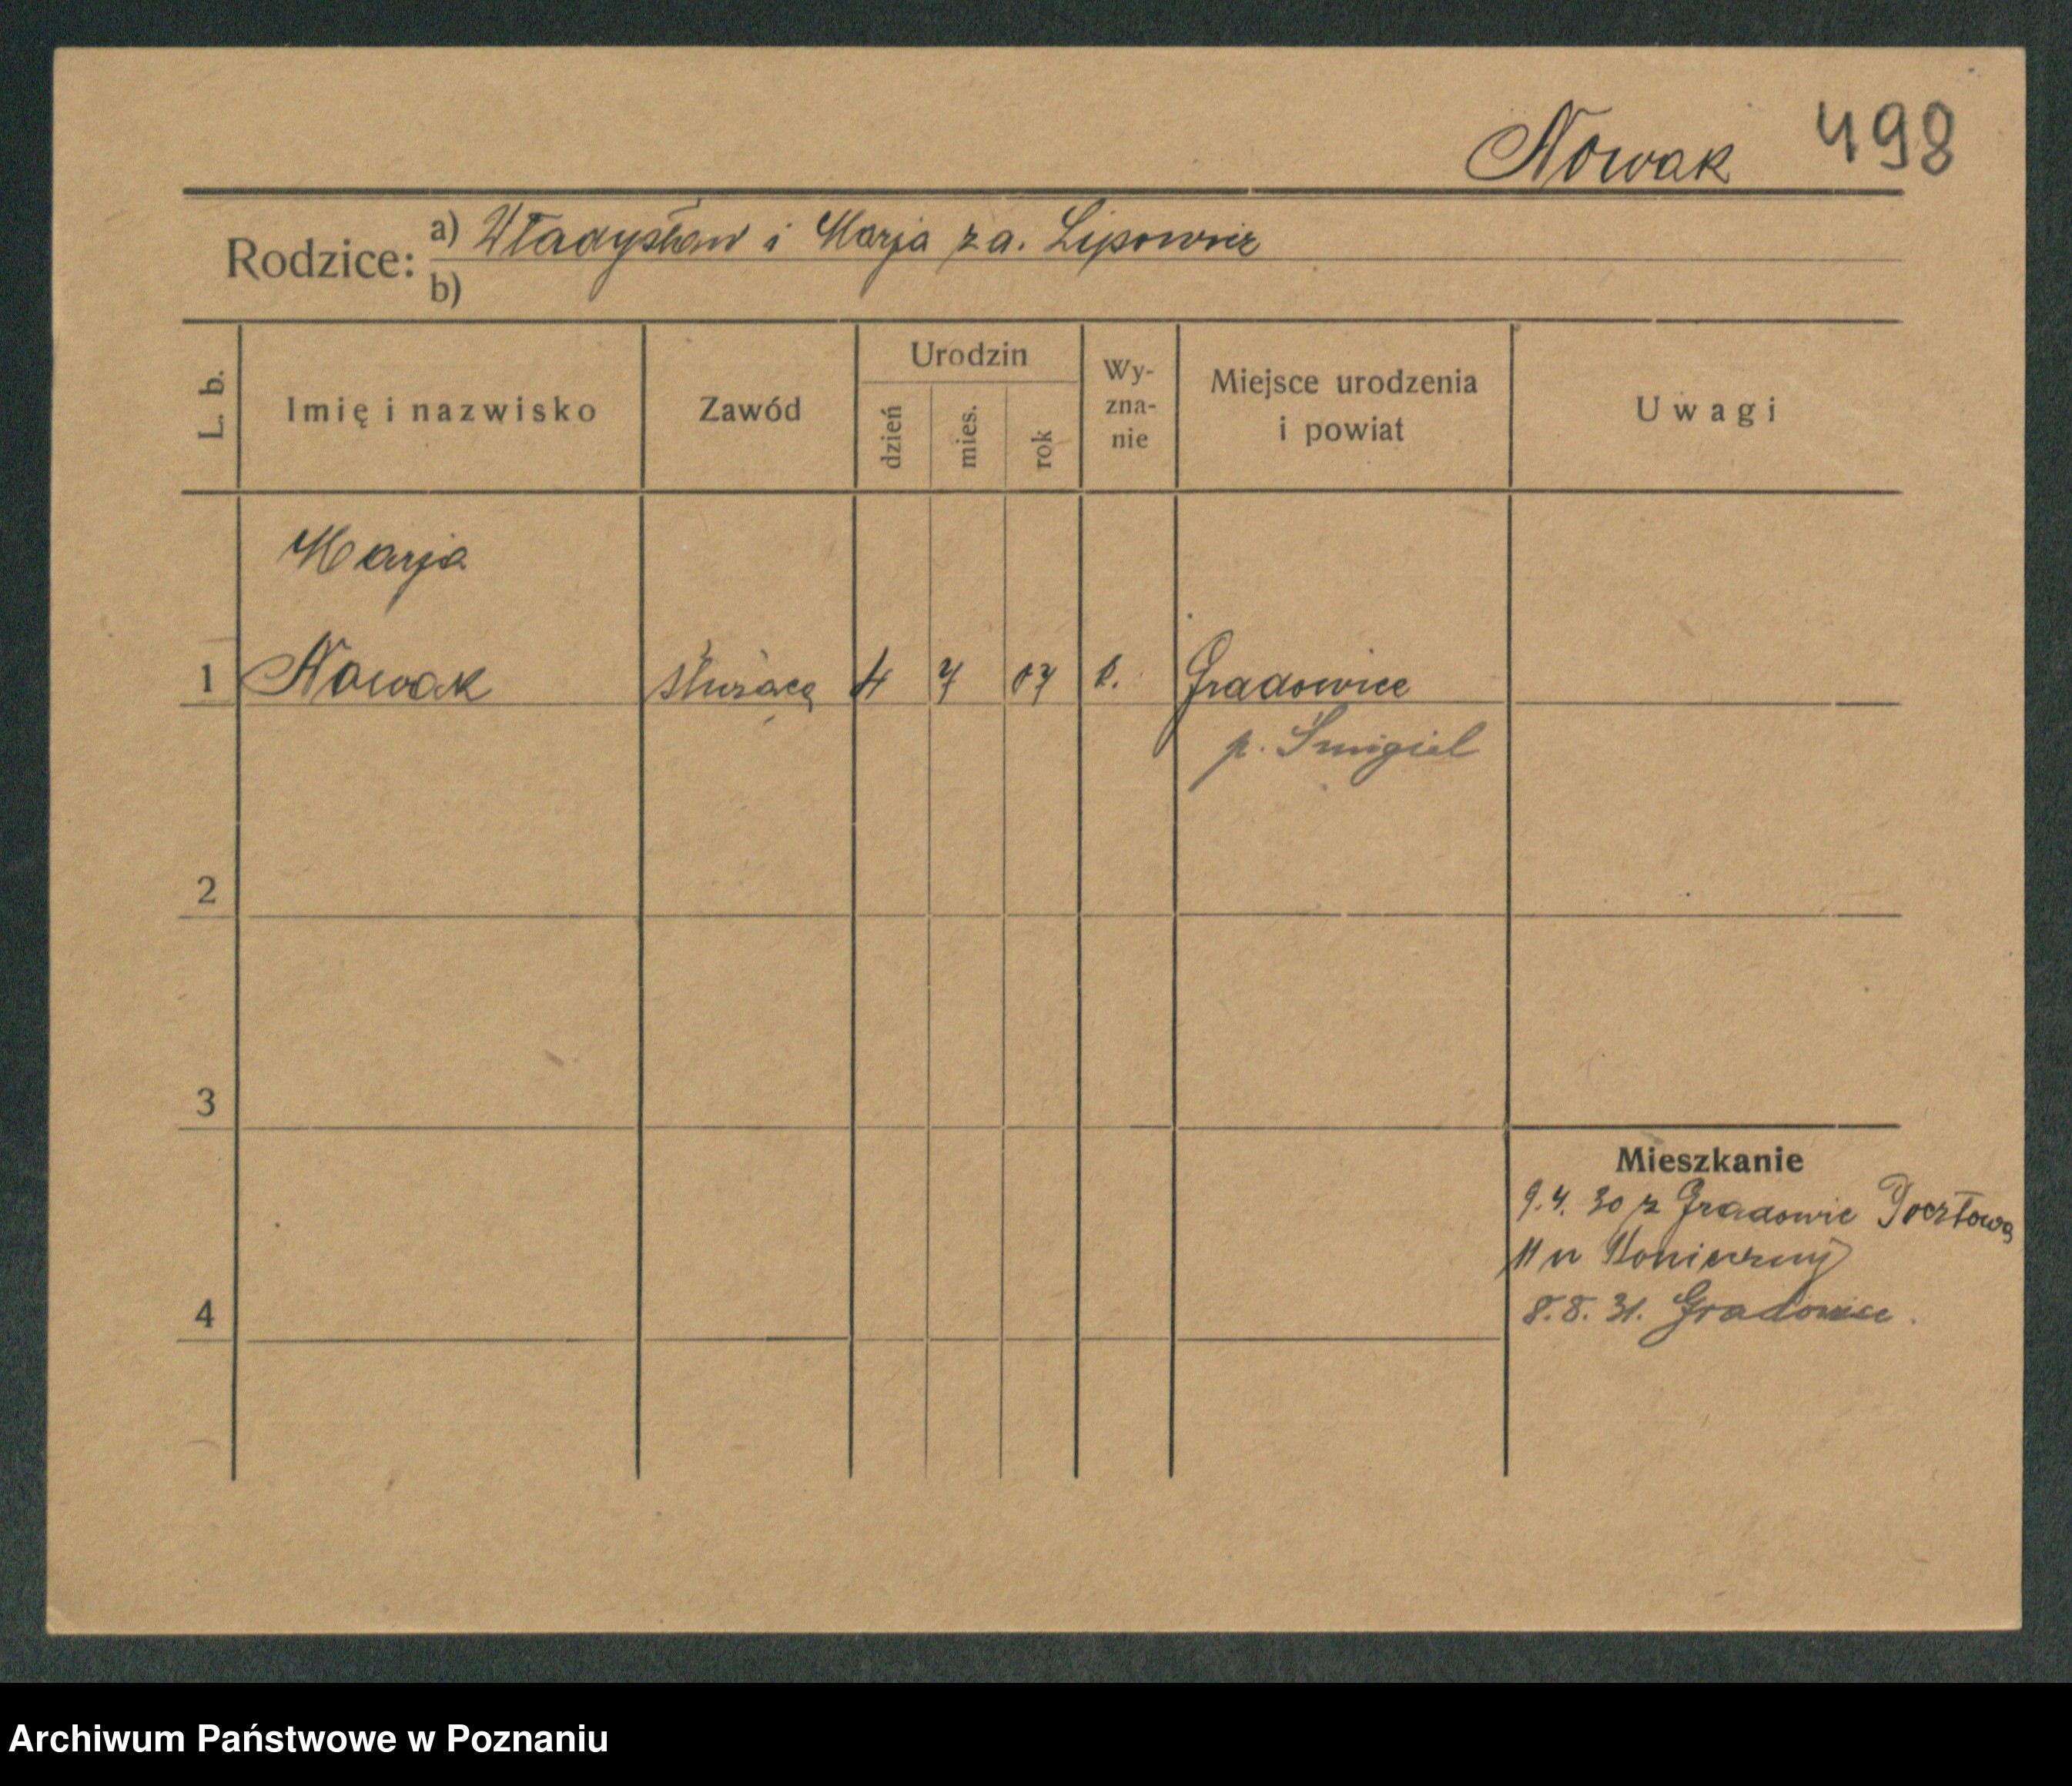 Nowak 498
Rodzice: a) Władysław i Marja z a. Lipowicz
b)
L. b. Imię i nazwisko Zawód Urodzin dzień mies. rok Wy-zna-nie Miejsce urodzenia i powiat Uwagi
Marja
1 Nowak służąca 4 7 07 k. Gradowice
p. Śmigiel
2
3
Mieszkanie
9.4.30 z Gradowic Pocztowa
11 u
4 8.8.31. Gradowice.
Archiwum Państwowe w Poznaniu